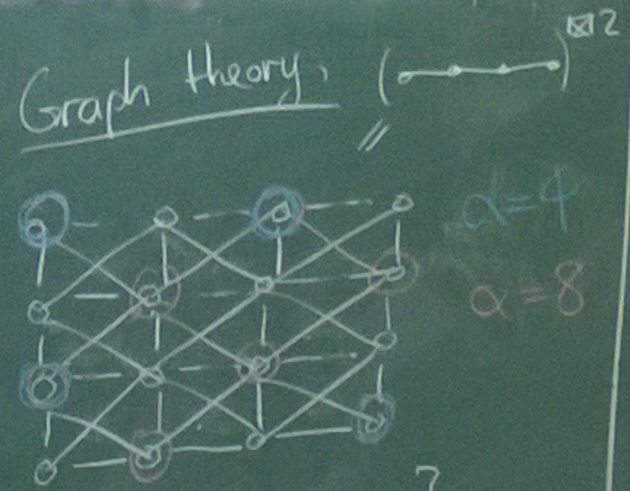 Graph theory, ( )⊠2
α=4
α=8
7